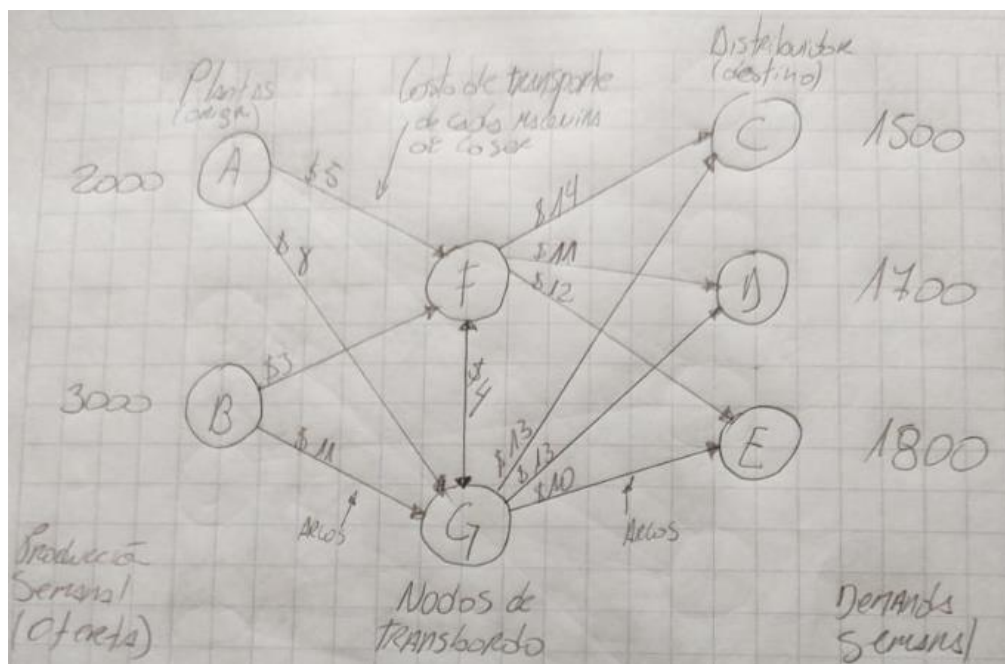 Plantas
(origen)
Costo de transporte
de cada maquina
de coser
Distribuidor
(destino)
2000
A
$5
$8
C
1500
$14
F
$11
$12
D
1700
3000
B
$3
$11
$4
$13
$13
$10
E
1800
G
Arcos
Arcos
Producció
Semanal
(Oferta)
Nodos de
TRANSBORDO
Demanda
Semanal